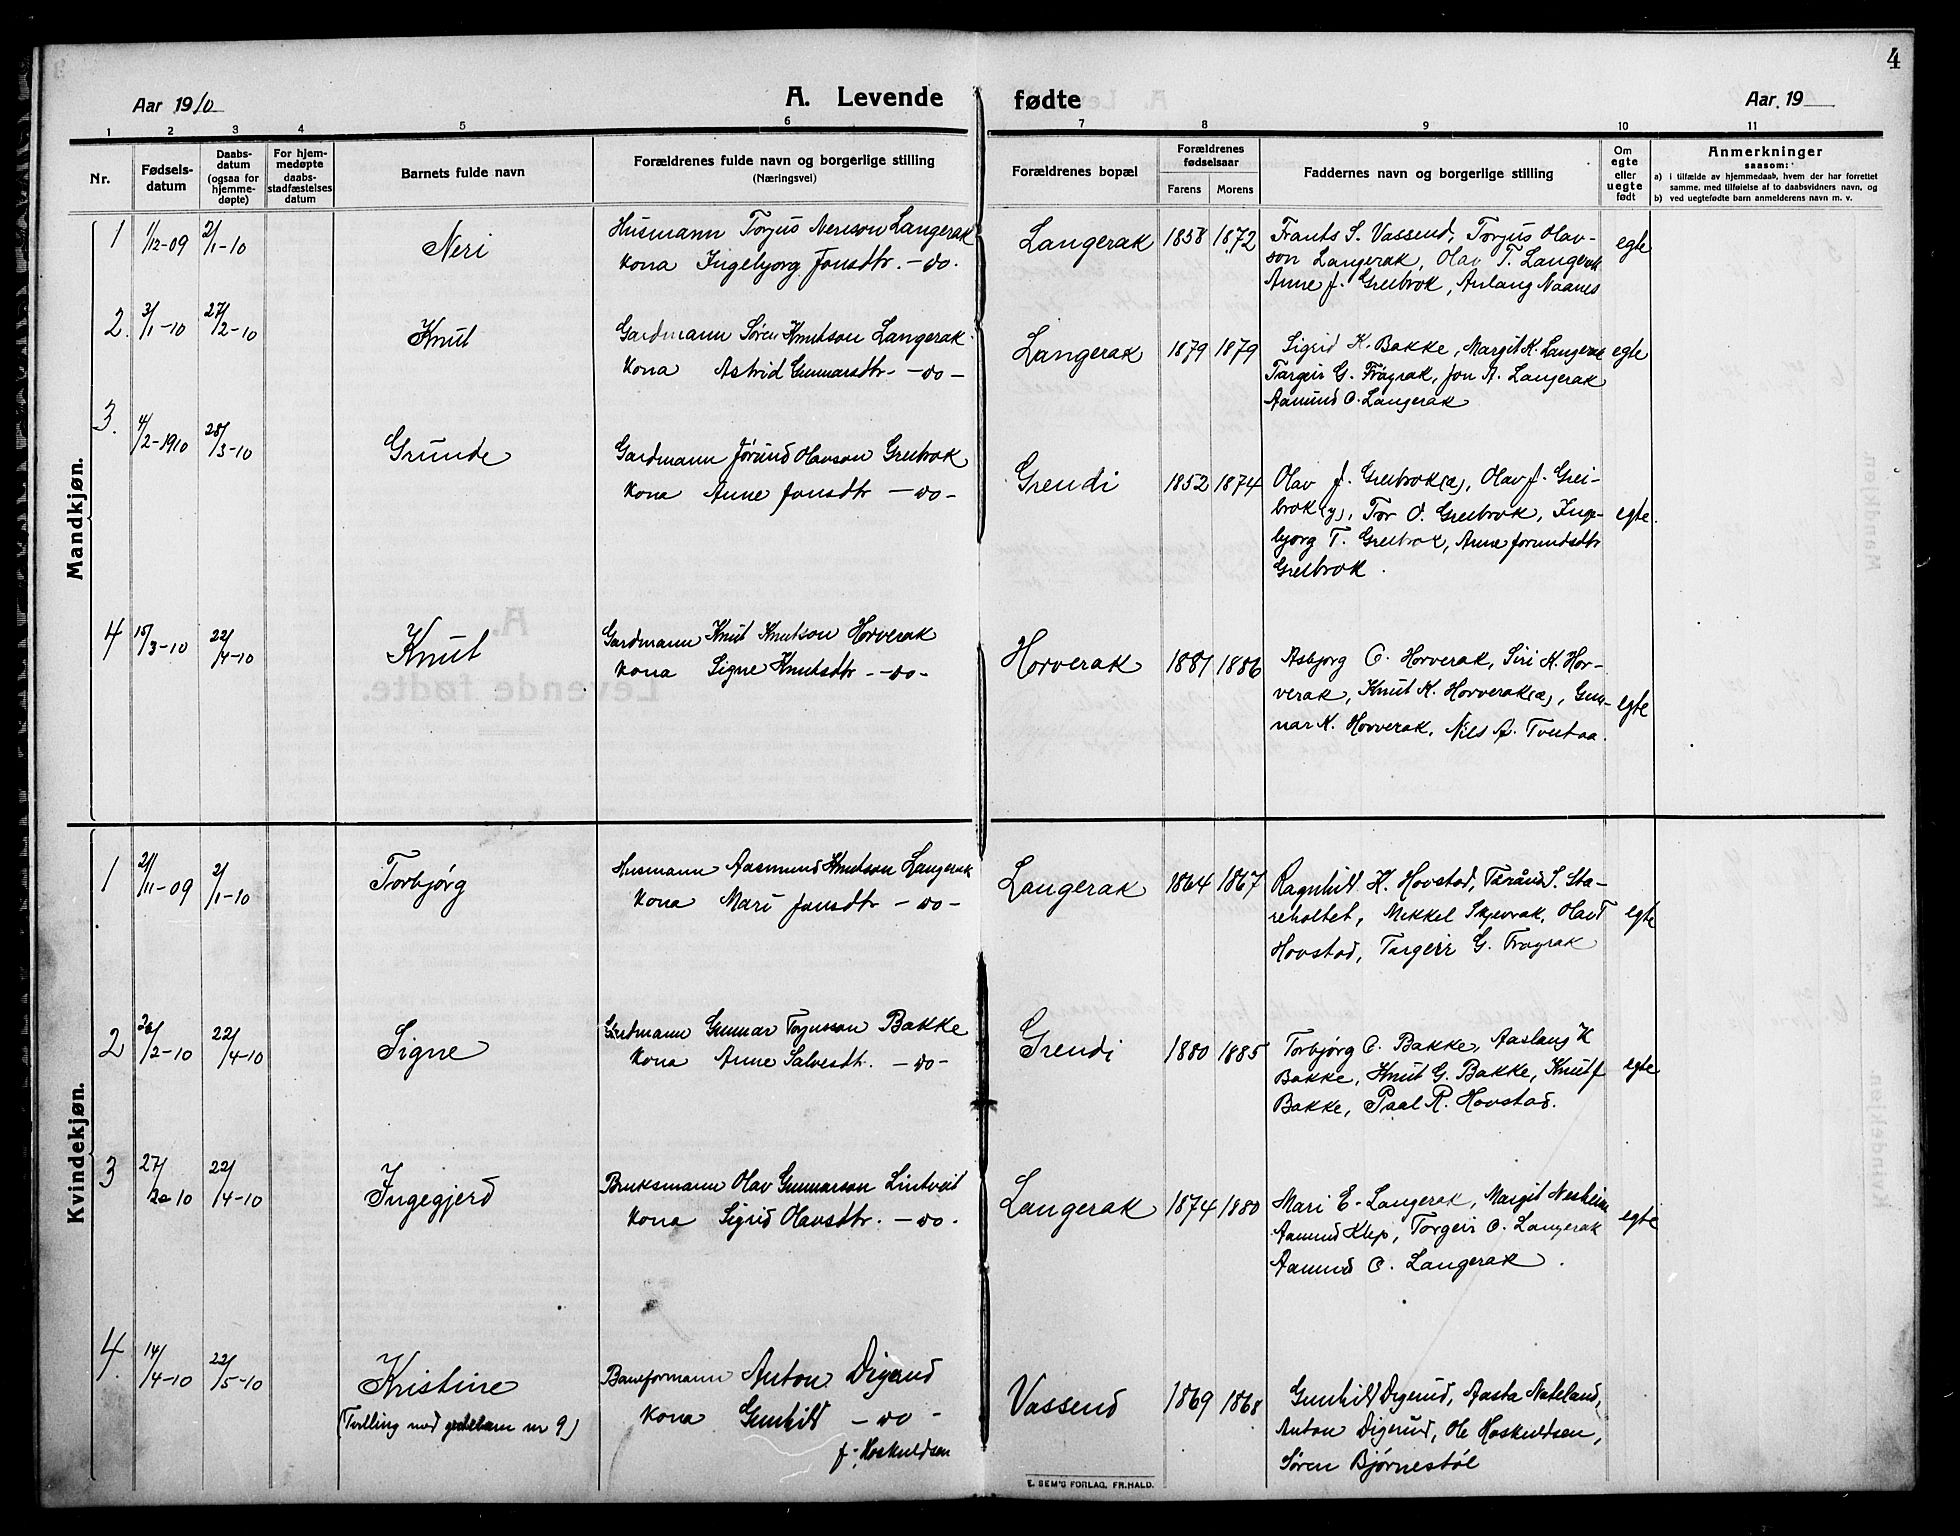 4
Aar 1910
A. Levende fødte
Aar 19
1 2 3 4 5 6 7 8 9 10 11
Nr.
Fødsels-
datum
Daabs-
datum
(ogsaa for
hjemme-
døpte)
For hjem-
medøpte
daabs-
stadfæstelses
datum
Barnets fulde navn
Forældrenes fulde navn og borgerlige stilling
(Næringsvei)
Forældrenes bopæl
Forældrenes
fødselsaar
Farens Morens
Faddernes navn og borgerlige stilling
Om
egte
eller
uegte
født
Anmerkninger
saasom:
a) i tilfælde av hjemmedaab, hvem der har forrettet
samme, med tilføielse af to daabsvidners navn, og
b) ved uegtefødte barn anmelderens navn m. v.
Mandkjøn.
1 1/12-09 2/1-10 Neri
Husmann Torjus Nerison Langerak
Kona Ingebjorg Jonsdtr. -do-
Langerak 1858 1872
Frants S. Vassend, Torjus Olav-
son Langerak, Olav T. Langerak
Anne J. Greibrok, Anlaug Naanes
egte
2. 3/1-10 27/2-10 Knut
Gardmann Søren Knutson Langerak
Kona Astrid Gunnarsdtr. -do-
Langerak 1879 1879
Sigrid K. Bakke, Margit K. Langerak
Targeir G. Frøyrak, Jon A. Langerak
Aamund O. Langerak
egte
3. 4/2-1910 28/3-10 Grunde
Gardmann Jørund Olavson Greibrok
Kona Anne Jonsdtr -do-
Grendi 1852 1874
Olav J. Greibrok(e), Olav J. Grei-
brok(y), Tor O. Greibrok, Inge-
bjorg T. Greibrok, Anne Jorundsdtr
Greibrok.
egte.
4 15/3-10 22/4-10 Knut
Gardmann Knut Knutson Horverak
Kona Signe Knutsdtr -do-
Horverak 1881 1886
Asbjorg O. Horverak, Siri K. Hor-
verak, Knut K. Horverak(e), Gun-
nar K. Horverak, Nils A. Tveitaa.
egte
Kvindekjøn.
1 21/11-09 2/1-10 Torbjørg
Husmann Aasmund Knutson Langerak
Kona Mari Jonsdtr -do-
Langerak 1864 1867
Ragnhild K. Hovstad, Tarånd S. Sta-
reholtet, Mikkel Skjevrak, Olav T
Hovstad, Targeir G. Frøyrak
egte
2 26/2-10 22/4-10 Signe
Gardmann Gunnar Torjusson Bakke
Kona Anne Salvesdtr. -do-
Grendi 1880 1885
Torbjørg O. Bakke, Aaslaug K
Bakke, Knut G. Bakke, Knut J
Bakke, Paal R. Hovstad.
egte
3 27/2-10 22/4-10 Ingegjerd
Bruksmann Olav Gunnarson Lintveit
Kona Sigrid Olavsdtr. -do-
Langerak 1874 1880
Mari E. Langerak, Margit Nesheim
Aamund Klep, Torgeir O. Langerak
Aamund O. Langerak.
egte
4. 14/4-10 22/5-10 Kristine
(Tvilling med gutebarn nr 9)
Baneformann Anton Digerud
Kona Gunhild -do-
f. Hoskuldsen
Vassend 1869 1868
Gunhild Digerud, Aasta Nateland,
Anton Digerud, Ole Hoskuldsen,
Søren Bjørnestøl
E. SEM'S FORLAG, FR.HALD.